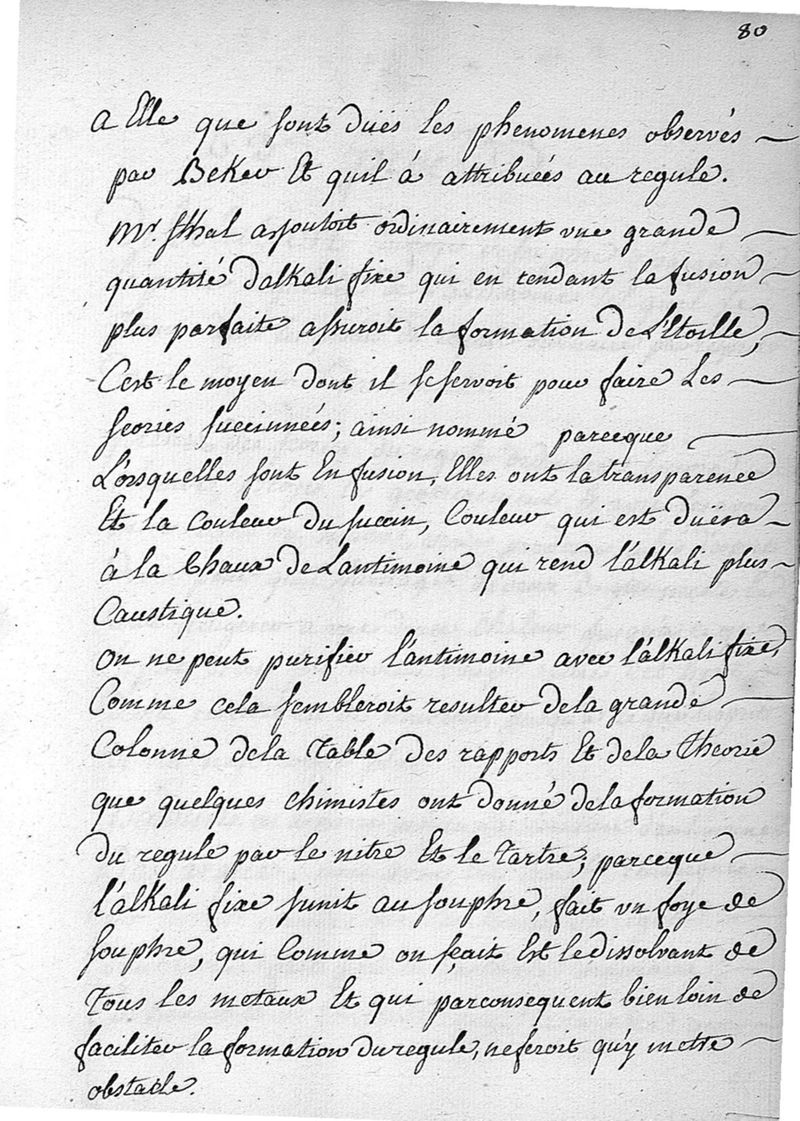 80
a Elle que sont düés les phenomenes observés
par Beker Et quil à attribuées au regule.
Mr. Sthal ajoutoit ordinairement une grande
quantité dalkali fixe qui en rendant la fusion
plus parfaite assuroit la formation de L'Etoille,
C'est le moyen dont il se servoit pour faire Les
scories succinnées; ainsi nommé parceque
Lorsquelles sont En fusion, Elles ont la transparence
Et la Couleur du succin, Couleur qui est düe
à la Chaux de Lantimoine qui rend l'alkali plus
Caustique.
On ne peut purifier l'antimoine avec l'álkali fixe,
Comme cela sembleroit resulter de la grande
Colonne dela Table des rapports Et de la Theorie
que quelques chimistes ont donné de la formation
du regule par le nitre Et le Tartre; parceque
l'alkali fixe s'unit au souphre, fait un foye de
souphre, qui Comme on sçait Est le dissolvant de
Tous les metaux Et qui parconsequent bien loin de
faciliter la formation du regule, ne feroit qu'y mettre
obstacle.